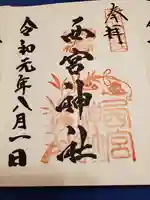 奉拝
西宮神社
西宮
令和元年八月一日